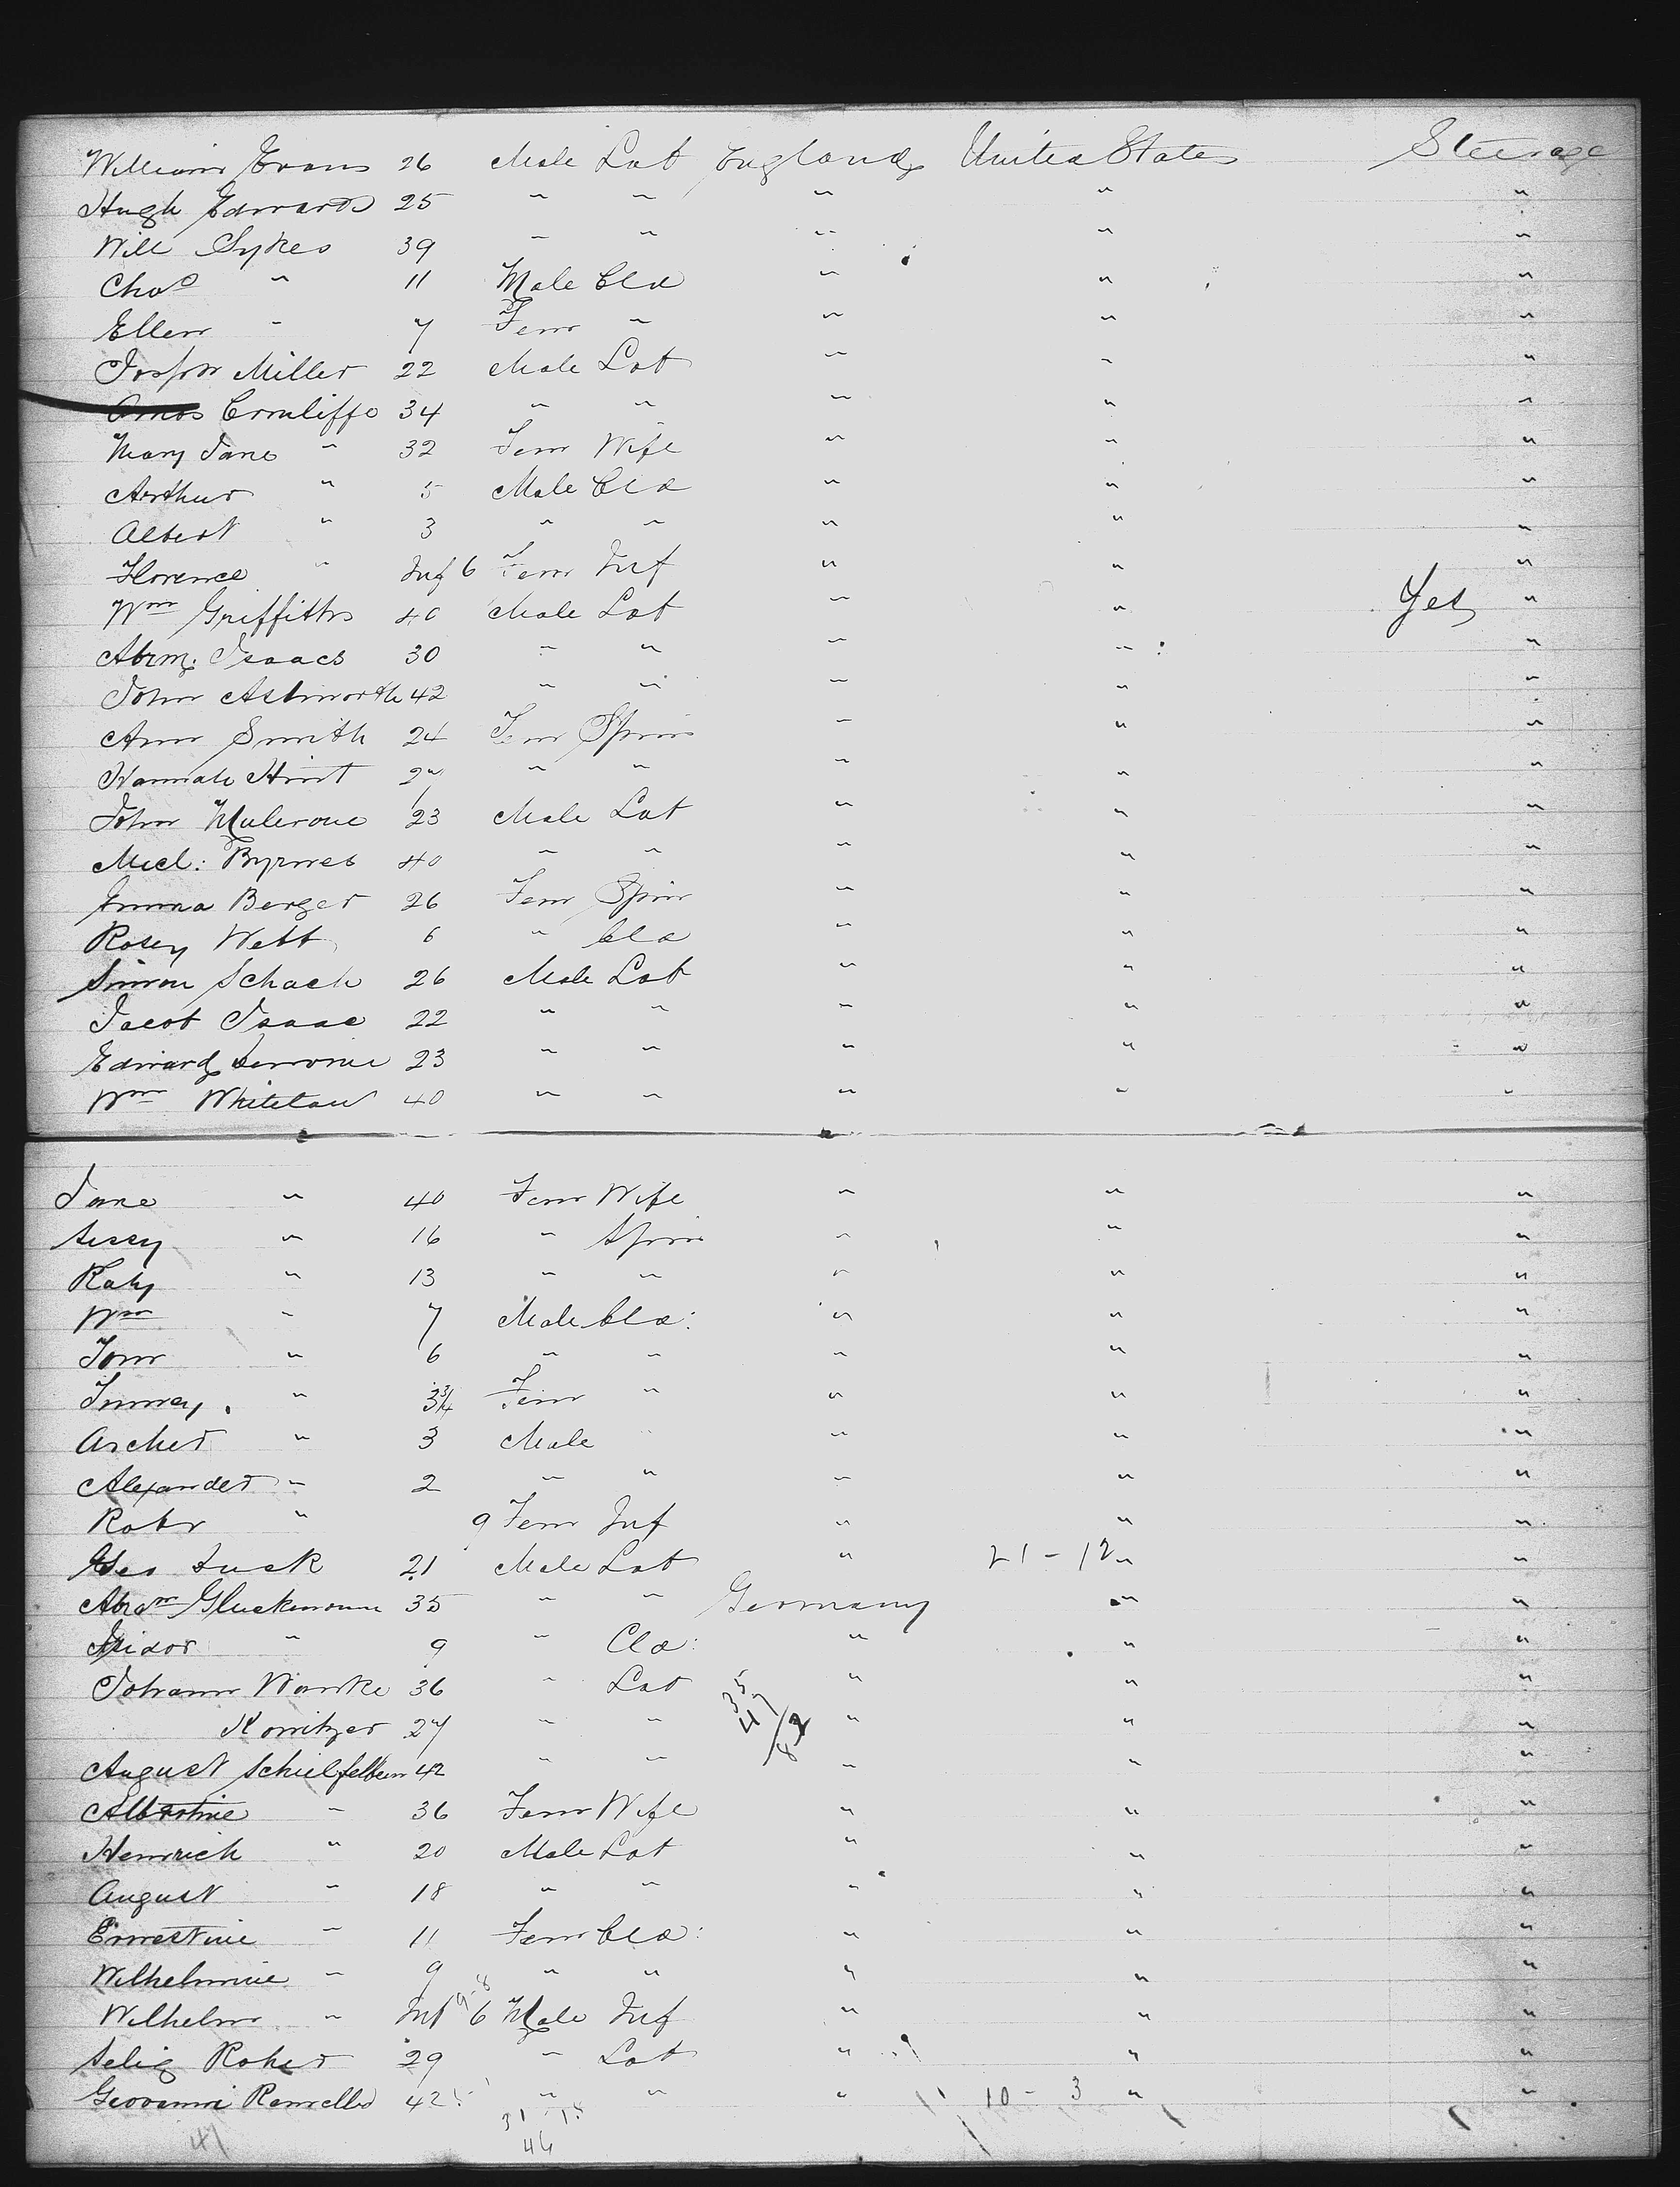 William Evans 26 Male Lab England United States Steerage
Hugh Edwards 25 " " " " "
Will Sykes 39 " " " " "
Chas " 11 Male Cld " " "
Ellen " 7 Fem " " " "
Joseph Miller 22 Male Lab " " "
Amos Cornliffe 34 " " " " "
Mary Jane " 32 Fem Wife " " "
Arthur " 5 Male Cld " " "
Albert " 3 " " " " "
Florence " Inf 6 Fem Inf " " "
Wm Griffiths 40 Male Lab " " Yes "
Abrm. Isaacs 30 " " " " "
John Ashworth 42 " " " " "
Ann Smith 24 Fem Spin " " "
Hannah 27 " " " " "
John 23 Male Lab " " "
Micl: Byrnes 40 " " " " "
Emma Berger 26 Fem Spin " " "
Rosey Webb 6 " Cld " " "
Simon Schach 26 Male Lab " " "
Jacob Isaac 22 " " " " "
Edward 23 " " " " "
Wm Whitelaw 40 " " " " "
Jane " 40 Fem Wife " " "
" 16 " Spin " " "
Katy " 13 " " " " "
Wm " 7 Male Cld: " " "
Tom " 6 " " " " "
" 3 3/4 Fem " " " "
Archer " 3 Male " " " "
Alexander " 2 " " " " "
Robr " 9 Fem Inf " " "
Geo Lusk 21 Male Lab " 21-12 " "
Abrm Gluckmann 35 " " Germany " "
Isidor " 9 " Cld: " " "
Johann Wanke 36 " Lab " " "
Konitzer 27 " " 35 47 / 82 " " "
August Schielfelbein 42 " " " " "
Albertine " 36 Fem Wife " " "
Heinrich " 20 Male Lab " " "
August " 18 " " " " "
Ernestine " 11 Fem Cld: " " "
Wilhelmine " 9 " " " " "
Wilhelm " Inf 9-8 6 Male Inf " " "
Selig Roher 29 " Lab " " "
Geovanni 42 " " " 10-3 " "
47 31 15
46